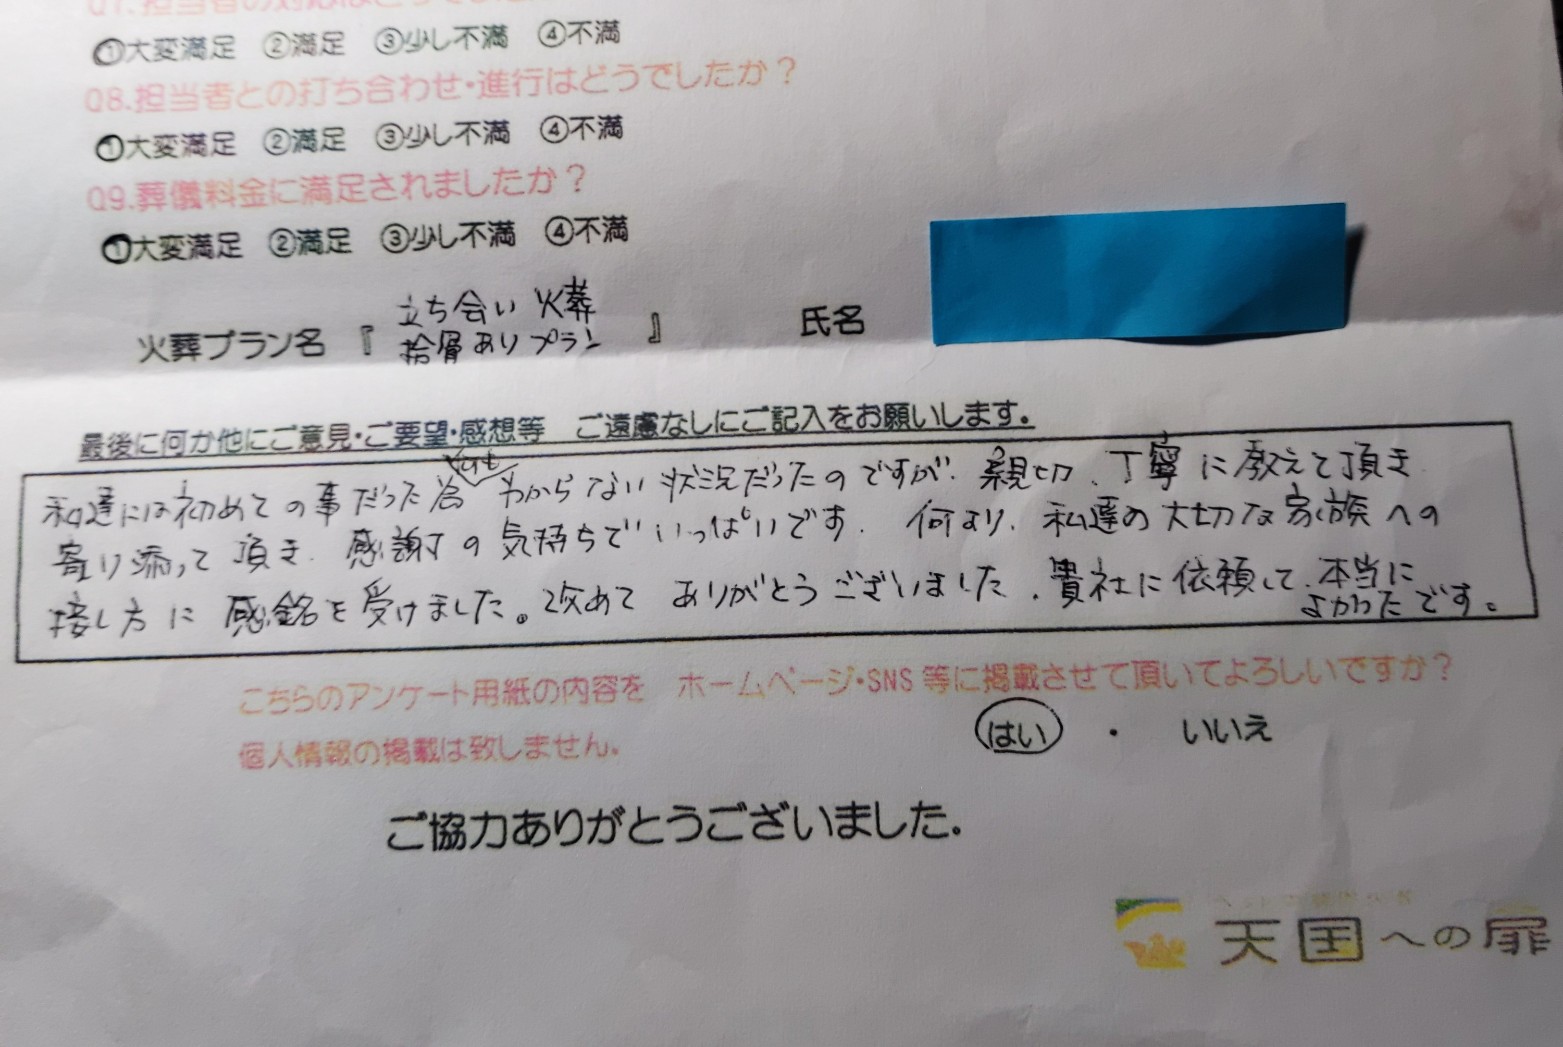 Q7.担当者の対応はどうでしたか
①大変満足 ②満足 ③少し不満 ④不満
Q8.担当者との打ち合わせ・進行はどうでしたか？
①大変満足 ②満足 ③少し不満 ④不満
Q9.葬儀料金に満足されましたか？
①大変満足 ②満足 ③少し不満 ④不満
立ち会い 火葬
火葬プラン名 『 拾骨ありプラン 』 氏名
最後に何か他にご意見・ご要望・感想等 ご遠慮なしにご記入をお願いします。
私達には初めての事だった為 何も わからない状況だったのですが、親切、丁寧に教えて頂き
寄り添って頂き、感謝の気持ちでいっぱいです。何より、私達の大切な家族への
接し方に感銘を受けました。改めてありがとうございました、貴社に依頼して、本当に
よかったです。
こちらのアンケート用紙の内容を ホームページ・SNS等に掲載させて頂いてよろしいですか？
個人情報の掲載は致しません。 はい ・ いいえ
ご協力ありがとうございました。
天国への扉